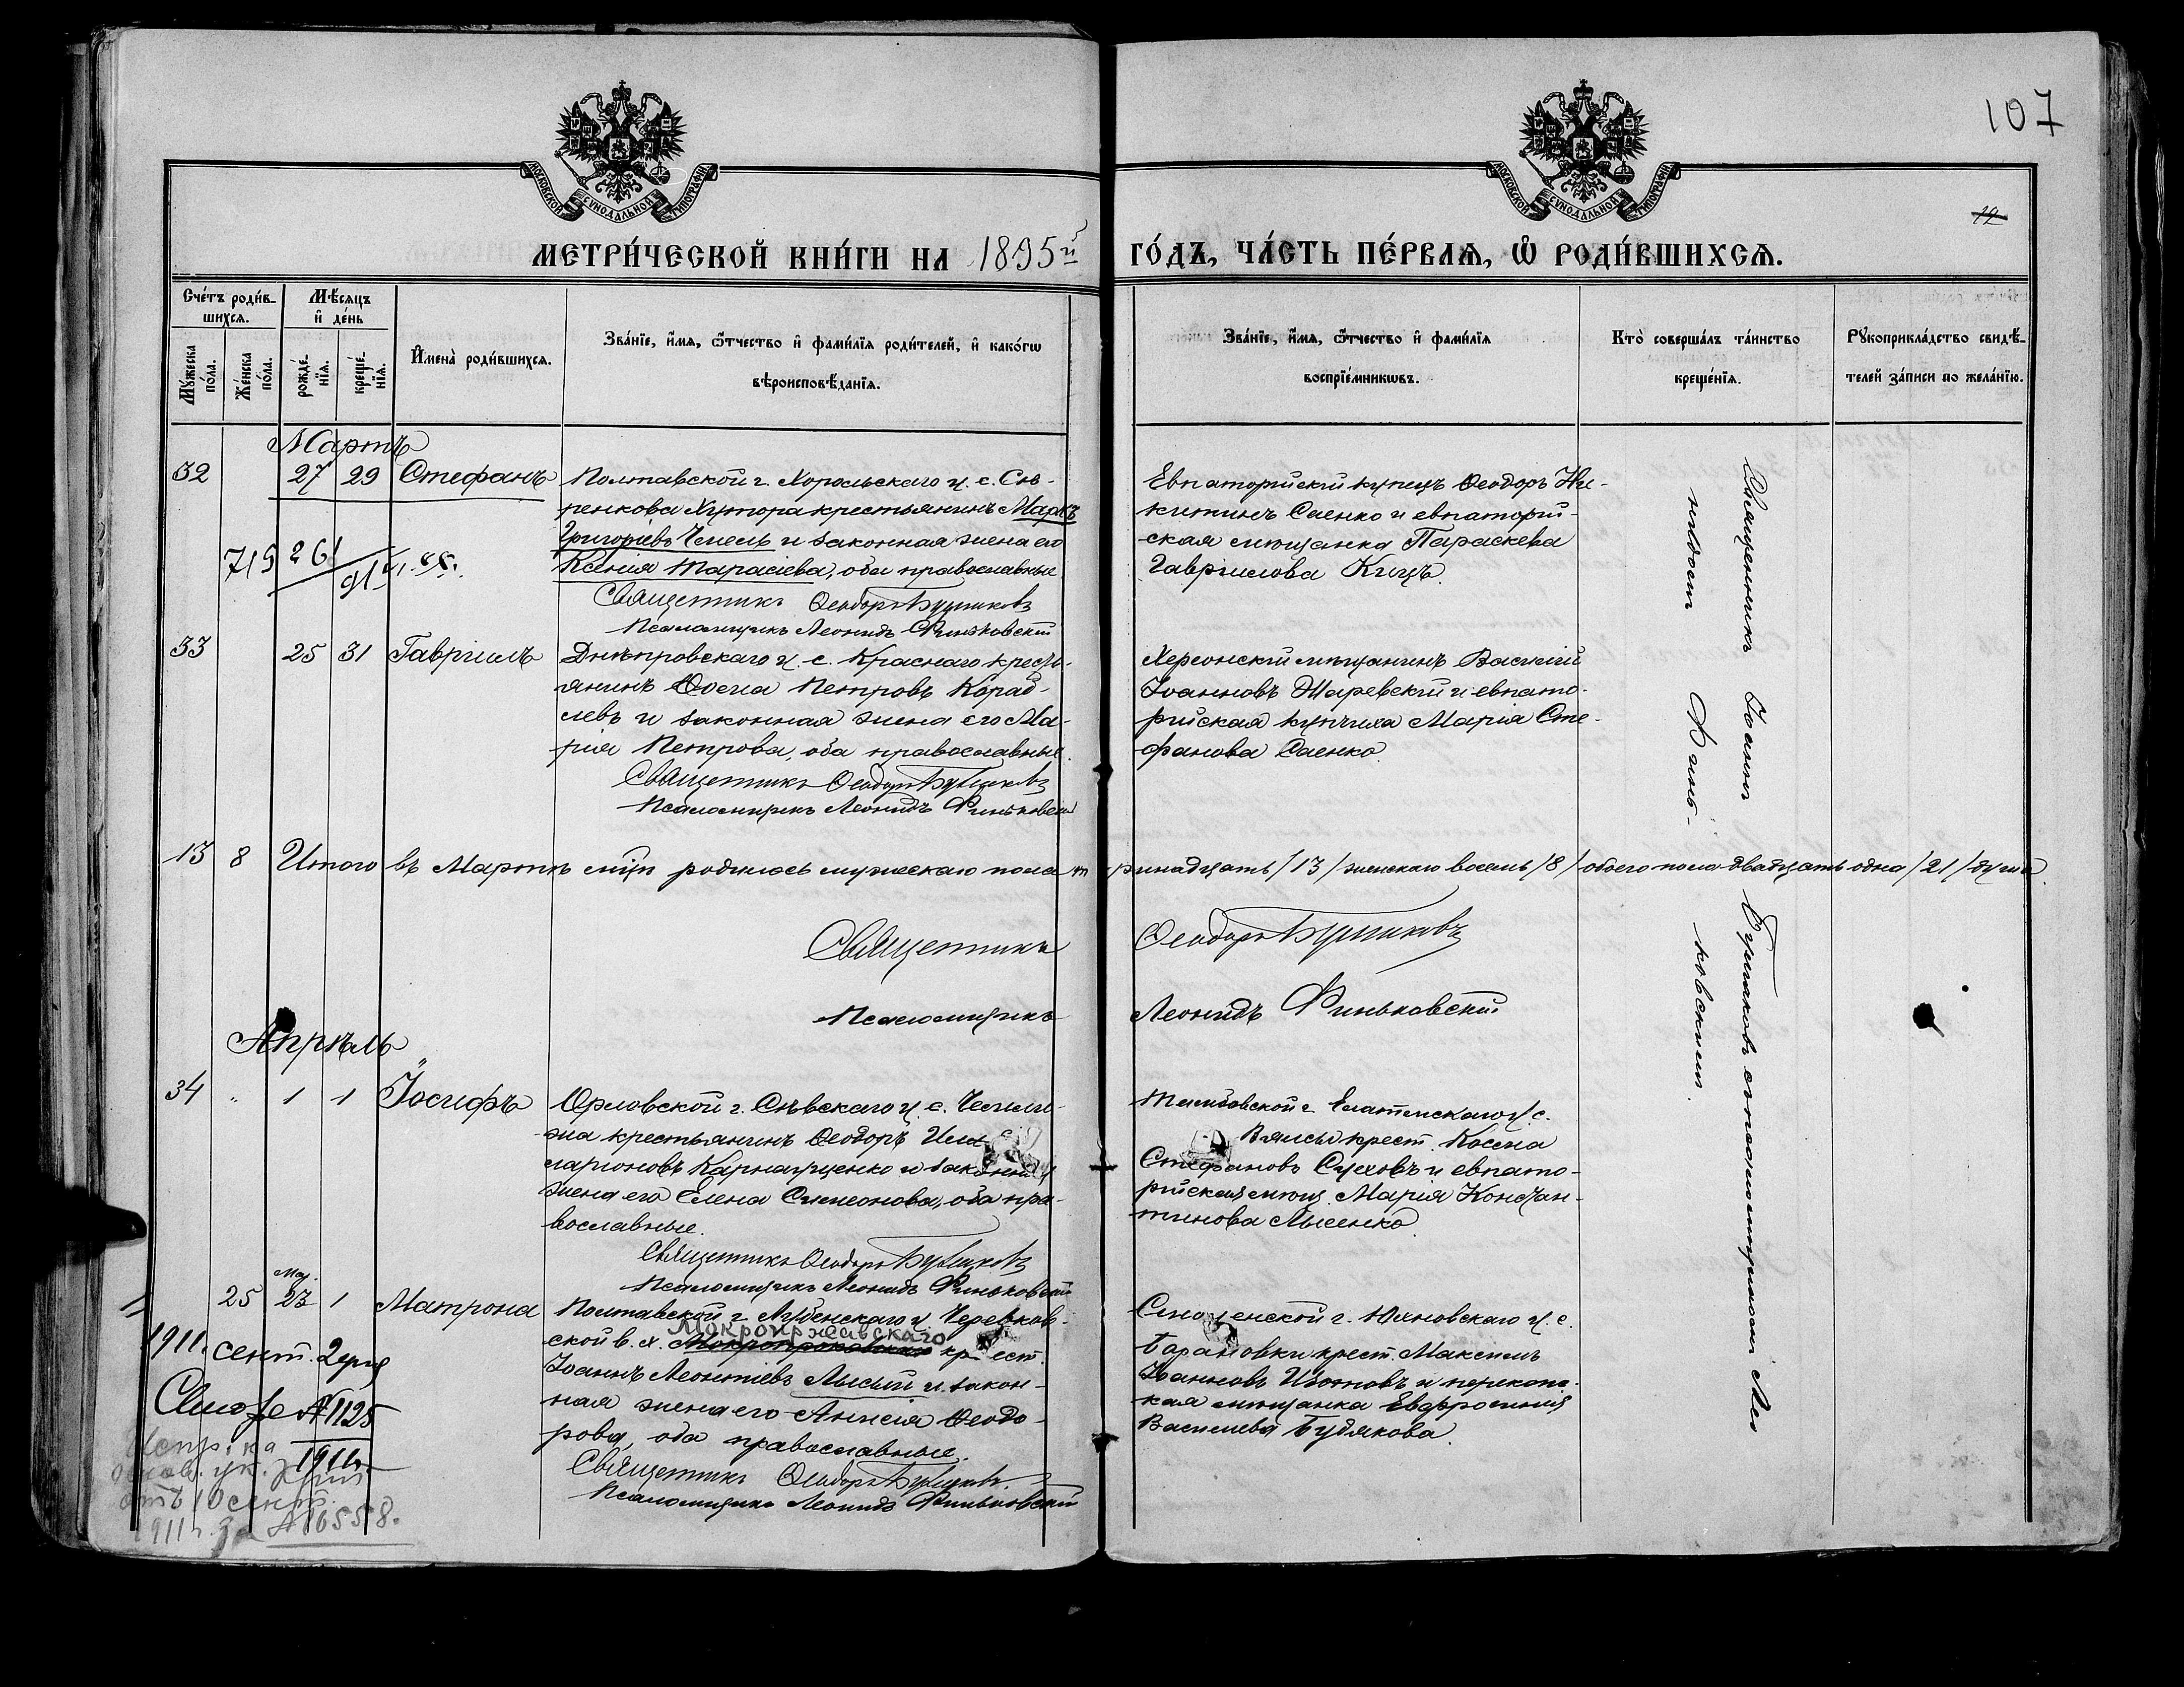 107
МОСКОВСКОЙ СѴНОДАЛЬНОЙ ТИПОГРАФІИ
МОСКОВСКОЙ СѴНОДАЛЬНОЙ ТИПОГРАФІИ
МЕТРИ́ЧЕСКОЙ КНИ́ГИ НА 1895й ГО́ДЪ, ЧА́СТЬ ПЕ́РВАѦ, Ѡ҆ РОДИ́ВШИХСѦ.
Сче́тъ роди́в-
шихсѧ.
Мѣ́сѧцъ
и҆ де́нь
Мꙋ́жеска
по́ла.
Же́нска
по́ла.
рожде́-
нїѧ.
креще́-
нїѧ.
И҆мена̀ роди́вшихсѧ.
Зва́нїе, и҆́мѧ, ѻ҆́тчество и҆ фами́лїѧ роди́телей, и҆ како́гѡ
вѣроисповѣ́данїѧ.
Зва́нїе, и҆́мѧ, ѻ҆́тчество и҆ фами́лїѧ
воспрїе́мникѡвъ.
Кто̀ соверша́лъ та́инство
креще́нїѧ.
Рꙋкоприкла́дство свидѣ́-
телей за́писи по жела́нїю.
Мартъ
32 27 29 Стефанъ
Полтавской г. Хорольскаго у. с. Сѣ-
ренкова Хутора крестьянинъ Маркъ
Григоріевъ Чемель и законная жена его
Ксенія Тарасіева, оба православные
Священникъ Ѳеодоръ Бушаковъ
Псаломщикъ Леонидъ Финьковскій
Евпаторійскій купецъ Ѳеодоръ Ни-
китинъ Саенко и евпаторій-
ская мѣщанка Параскева
Гавріилова Куцъ.
719 261
33 25 31 Гавріилъ
Днѣпровскаго у. с. Краснаго кресть-
янинъ Ѳома Петровъ Кораб-
левъ и законная жена его Ма-
рія Петрова, оба православные.
Священникъ Ѳеодоръ Бушаковъ
Псаломщикъ Леонидъ Финьковскій
Херсонскій мѣщанинъ Василій
Іоанновъ Шаревскій и евпато-
рійская купчиха Марія Сте-
фанова Саенко.
13 8 Итого въ Мартѣ мцѣ родилось мужескаго пола тринадцать /13/ женскаго восемь /8/ обоего пола двадцать одна /21/ душа.
Священникъ Ѳеодоръ Бушаковъ
Псаломщикъ Леонидъ Финьковскій
Апрѣль
34 " 1 1 Іосифъ
Орловской г. Сѣвскаго у. с.
жа крестьянинъ Ѳеодоръ
ларіоновъ Карнаущенко и законная
жена его Елена Симеонова, оба пра-
вославные.
Священникъ Ѳеодоръ Бушаковъ
Псаломщикъ Леонидъ Финьковскій
Тамбовской г. Елатомскаго у. с.
крест. Косма
Стефановъ Суховъ и евпато-
рійская мѣщ. Марія Констан-
тинова Лысенко.
25 23 1 Матрона
Полтавской г. Лубенскаго у. Черевков-
ской в. х. Мокроиржавскаго крест.
Іоаннъ Леонтіевъ Лысый и закон-
ная жена его Анисія Ѳеодо-
рова, оба православные.
Священникъ Ѳеодоръ Бушаковъ
Псаломщикъ Леонидъ Финьковскій
Смоленской г. Юхновскаго у. с.
Барановки крест. Максимъ
Іоанновъ Изотовъ и перекопс-
кая мѣщанка Евфросинія
Василіева Будякова.
1911. сент. 2 дня
№ 1125
1911г.
отъ 10 сентб.
1911 г. за № 16558.
Священникъ Іоаннъ Бушаковъ съ псаломщикомъ Лео
нидомъ Финь-
ковскимъ.